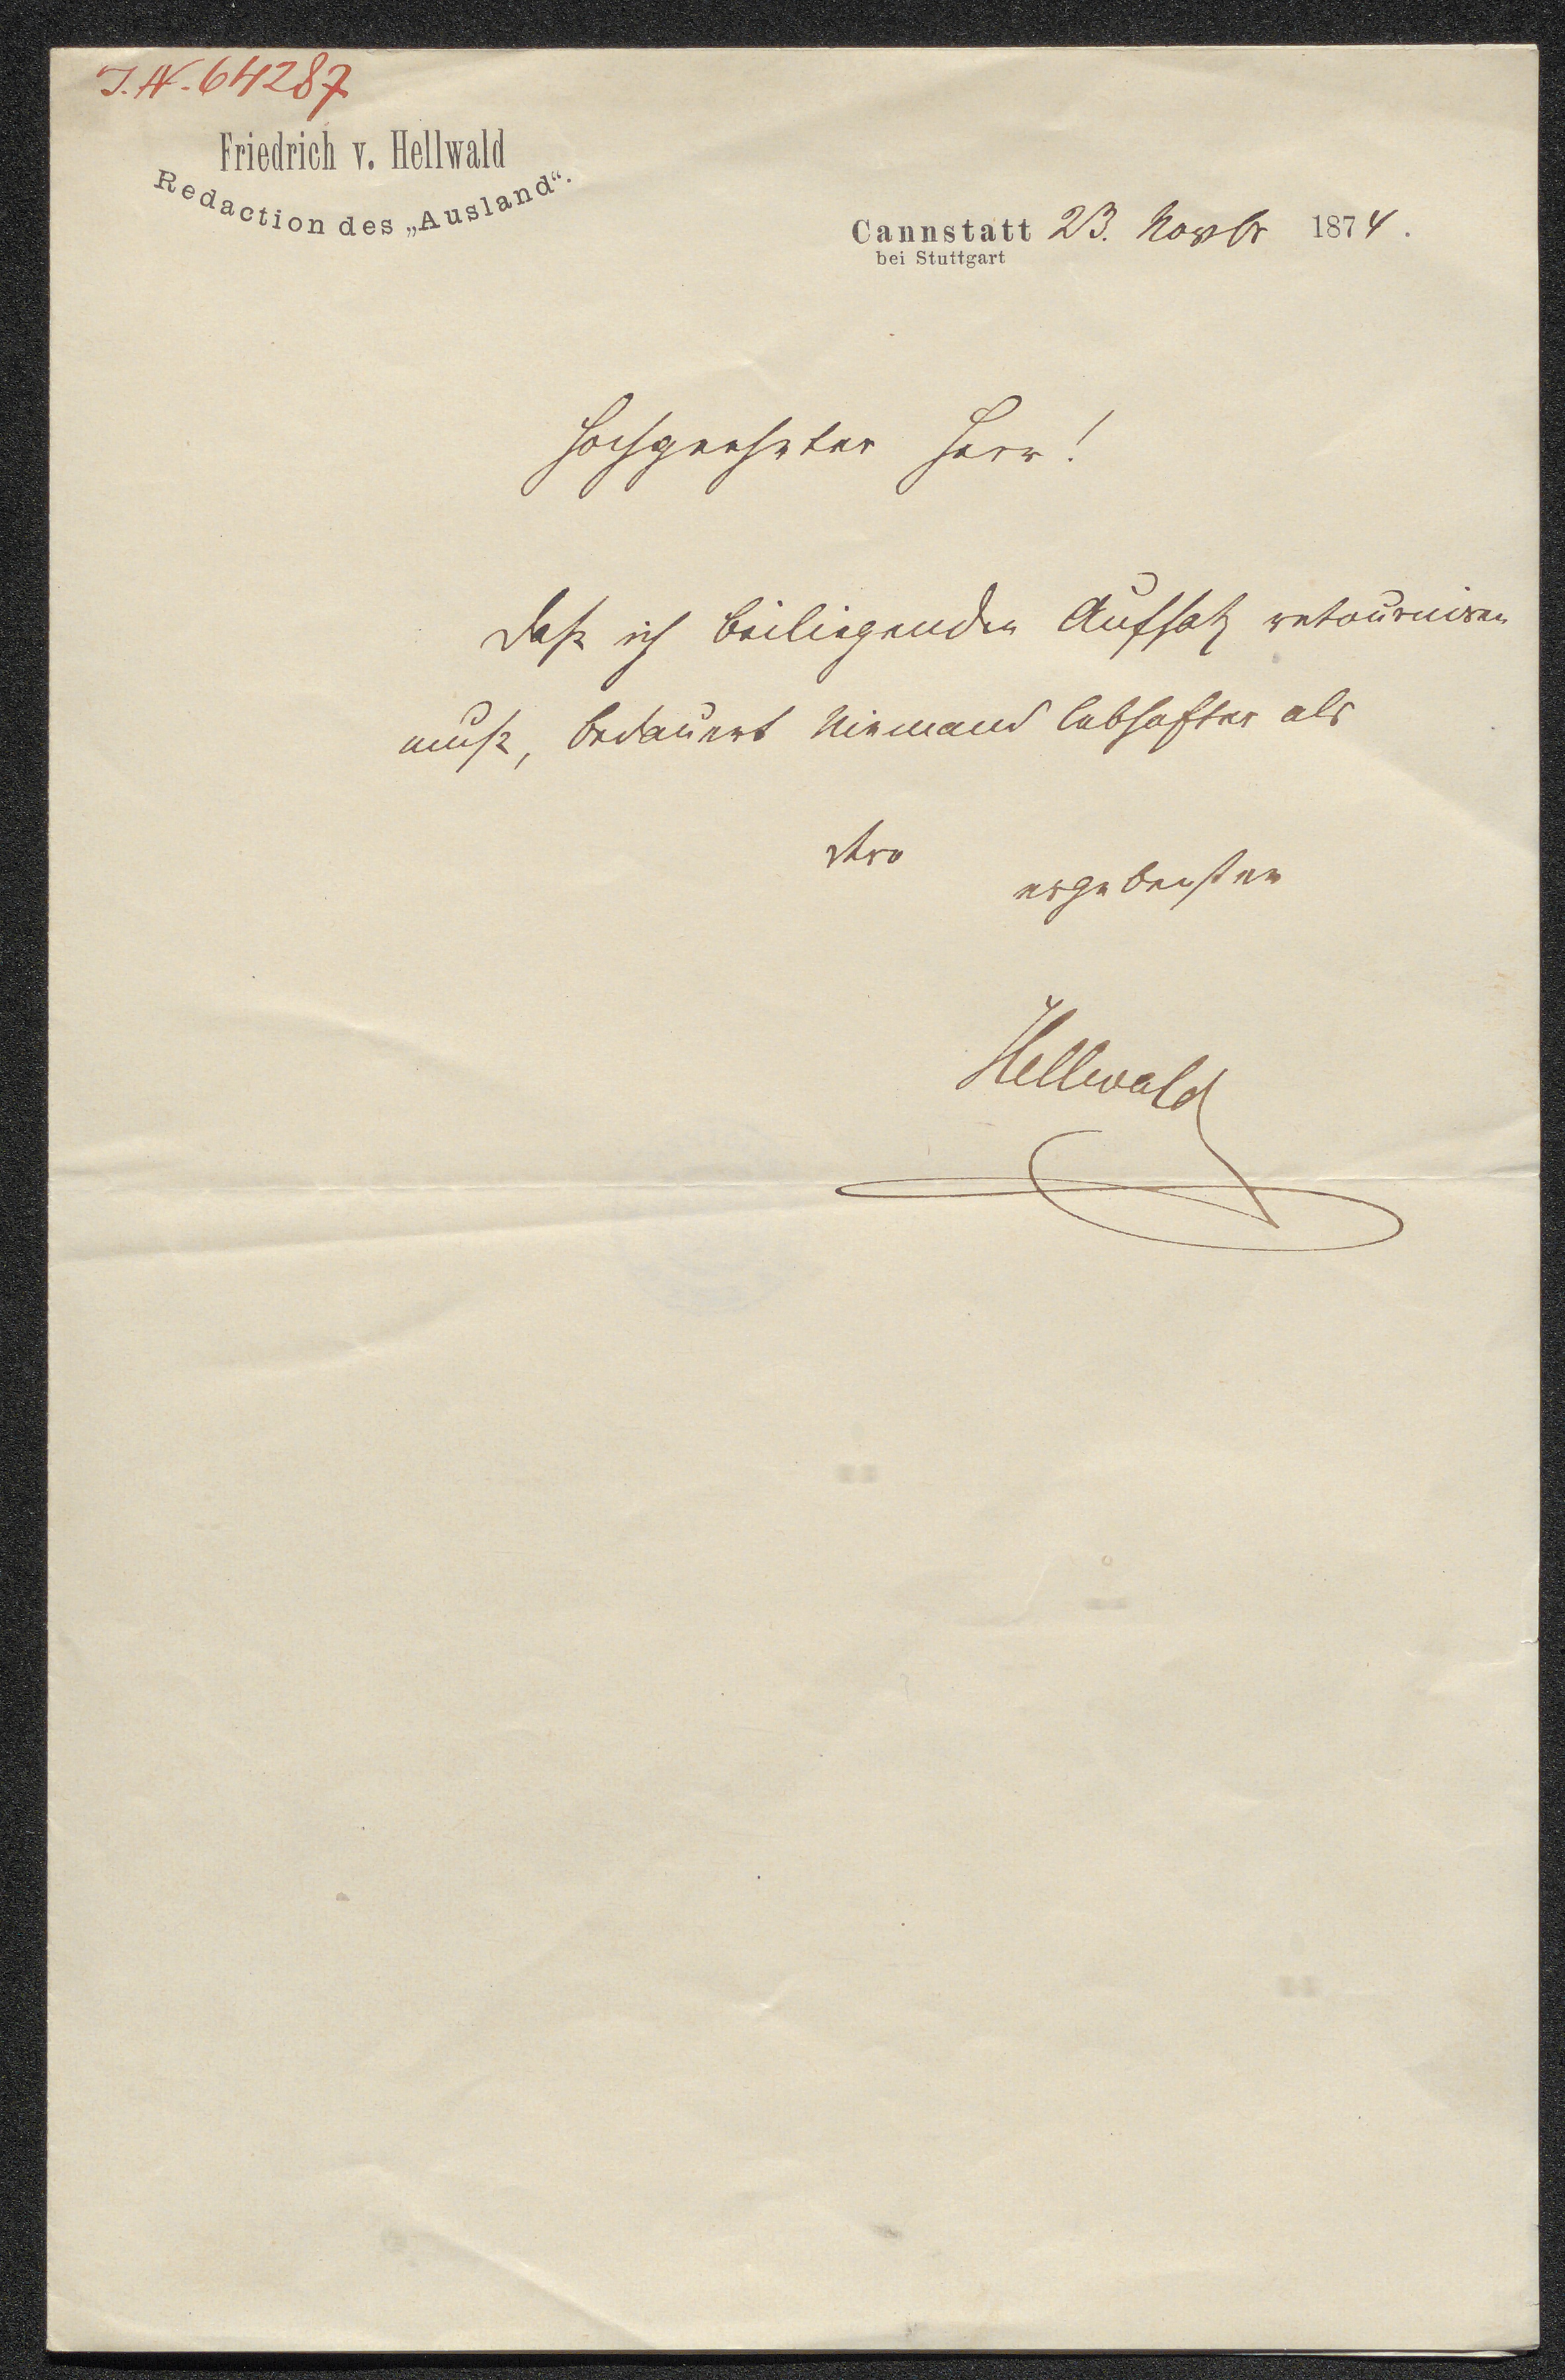 J.N. 64287
Friedrich v. Hellwald
Redaction des „Ausland“.
Cannstatt 23. Novbr 1874.
bei Stuttgart
Hochgeehrter Herr!
Daß ich beiliegenden Aufsatz retourniren
muß, bedauert Niemand lebhafter als
Ihro
ergebensten
Hellwald